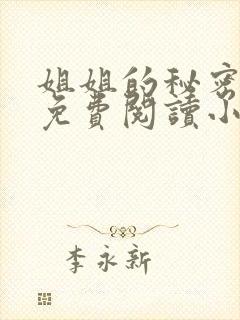 姐姐的秘密
免費閱讀小
李永新